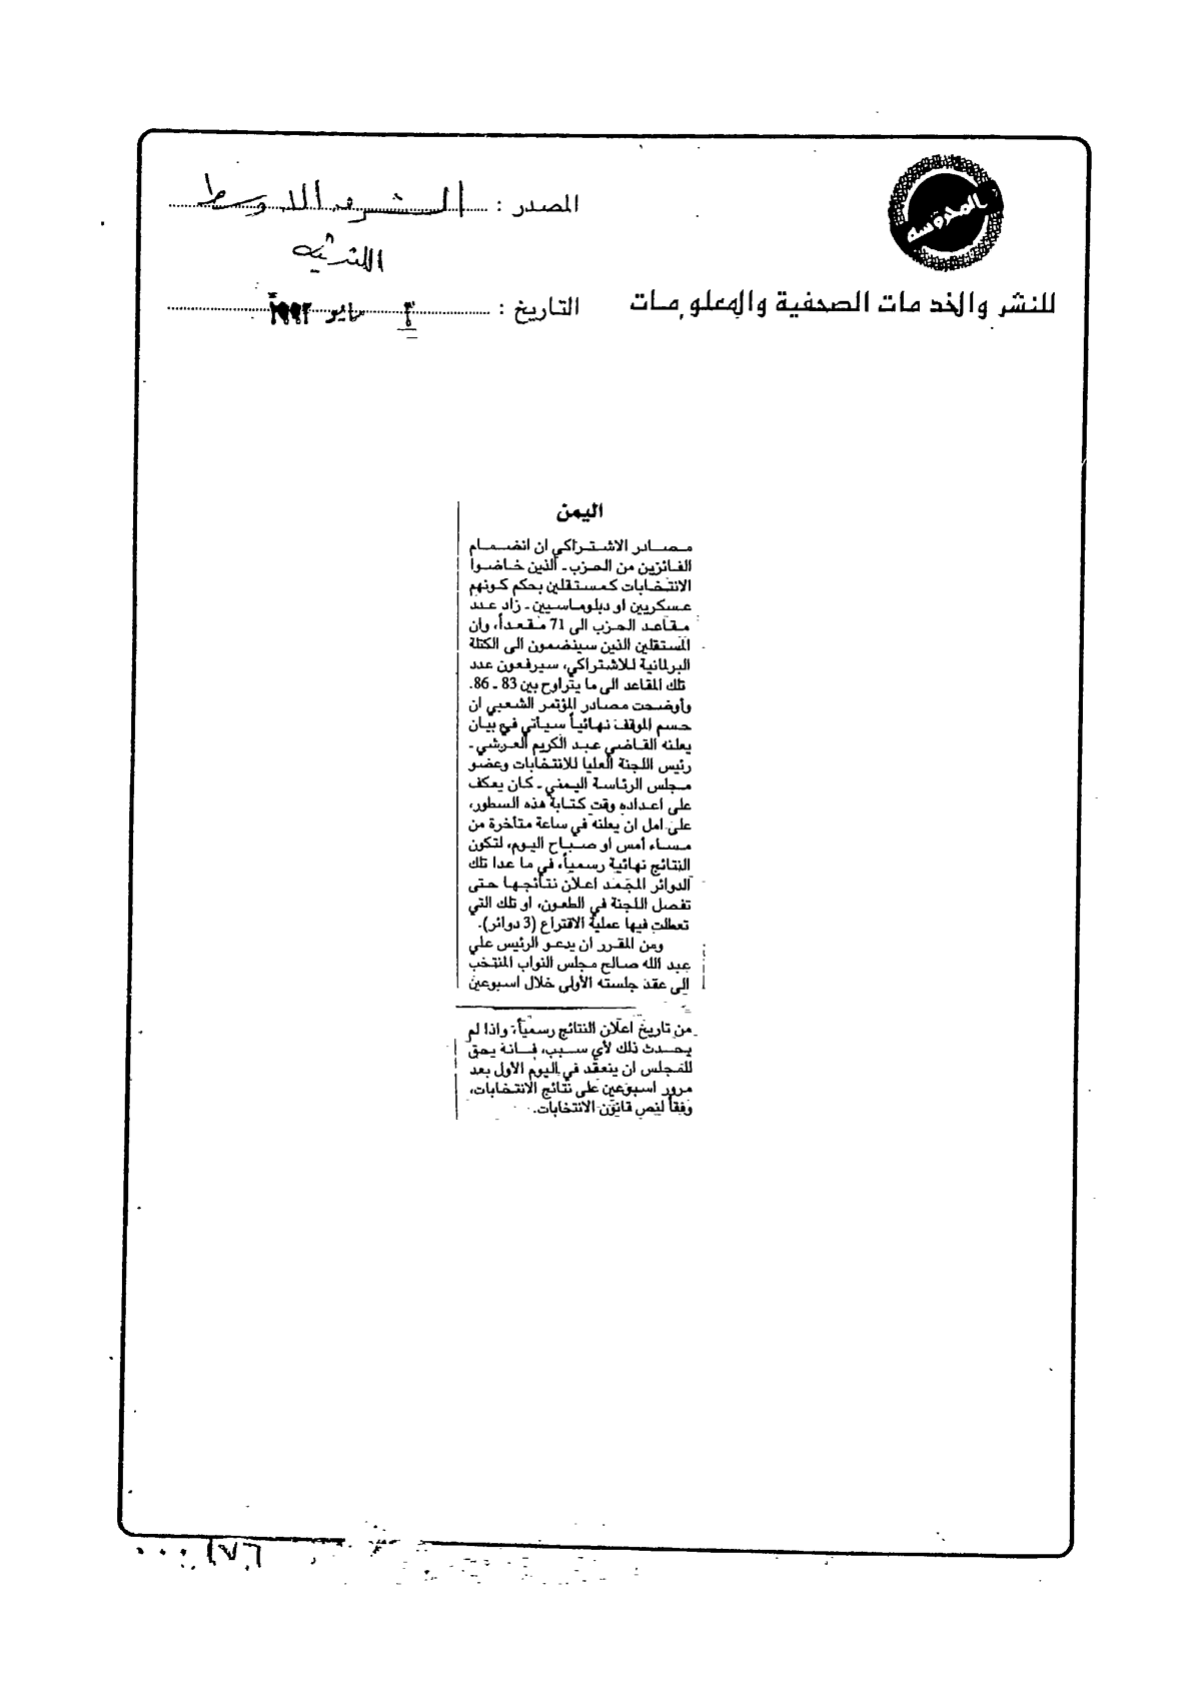 المدوسه
للنشر والخدمات الصحفية والمعلومات
المصدر : الشرق الاوسط
اللندنية
التاريخ : مايو ١٩٩٣
اليمن
مصادر الاشتراكي ان انضمام
الفائزين من الحزب ـ الذين خاضوا
الانتخابات كمستقلين بحكم كونهم
عسكريين او دبلوماسيين ـ زاد عدد
مقاعد الحزب الى 71 مقعداً، وان
المستقلين الذين سينضمون الى الكتلة
البرلمانية للاشتراكي، سيرفعون عدد
تلك المقاعد الى ما يتراوح بين 83 ـ 86.
وأوضحت مصادر المؤتمر الشعبي ان
حسم الموقف نهائياً سيأتي في بيان
يعلنه القاضي عبد الكريم العرشي ـ
رئيس اللجنة العليا للانتخابات وعضو
مجلس الرئاسة اليمني ـ كان يعكف
على اعداده وقت كتابة هذه السطور،
على امل ان يعلنه في ساعة متأخرة من
مساء أمس او صباح اليوم، لتكون
النتائج نهائية رسمياً، في ما عدا تلك
الدوائر المجمد اعلان نتائجها حتى
تفصل اللجنة في الطعون، او تلك التي
تعطلت فيها عملية الاقتراع (3 دوائر).
ومن المقرر ان يدعو الرئيس علي
عبد الله صالح مجلس النواب المنتخب
إلى عقد جلسته الأولى خلال اسبوعين
من تاريخ اعلان النتائج رسمياً، واذا لم
يحدث ذلك لأي سبب، فانه يحق
للمجلس ان ينعقد في اليوم الأول بعد
مرور اسبوعين على نتائج الانتخابات،
وفقاً لنص قانون الانتخابات.